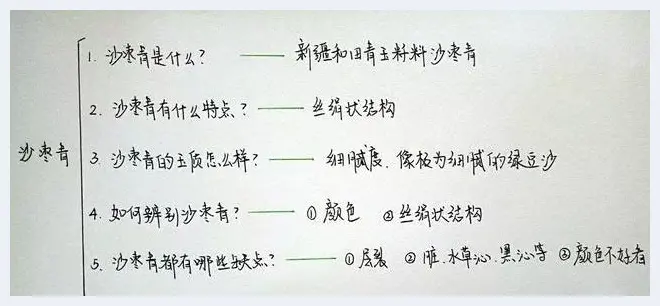 沙枣青
1. 沙枣青是什么? —— 新疆和田青玉籽料沙枣青
2. 沙枣青有什么特点? —— 丝绢状结构
3. 沙枣青的玉质怎么样? —— 细腻度、像极为细腻的绿豆沙
4. 如何辨别沙枣青? —— ①颜色 ②丝绢状结构
5. 沙枣青都有哪些缺点? —— ①层裂 ②脏、水草沁、黑沁等 ③颜色不好者